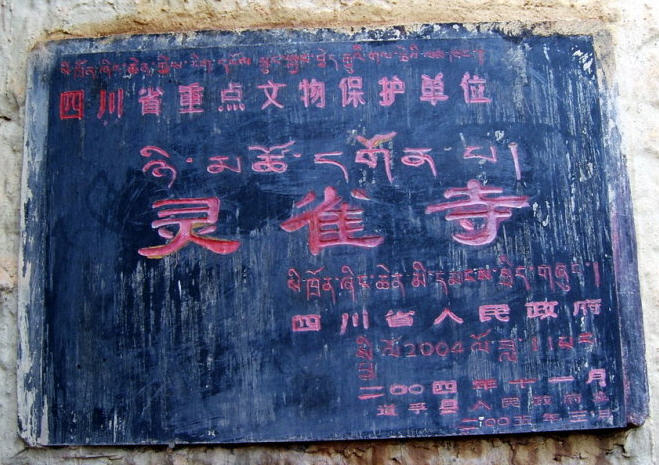 四川省重点文物保护单位
ཉི་མ་ཚོ་དགོན་པ།
灵雀寺
སི་ཁྲོན་ཞིང་ཆེན་མི་དམངས་སྲིད་གཞུང་།
四川省人民政府
2004 ལོ་ 11
二〇〇四年十一月
道孚县人民政府立
二〇〇五年三月